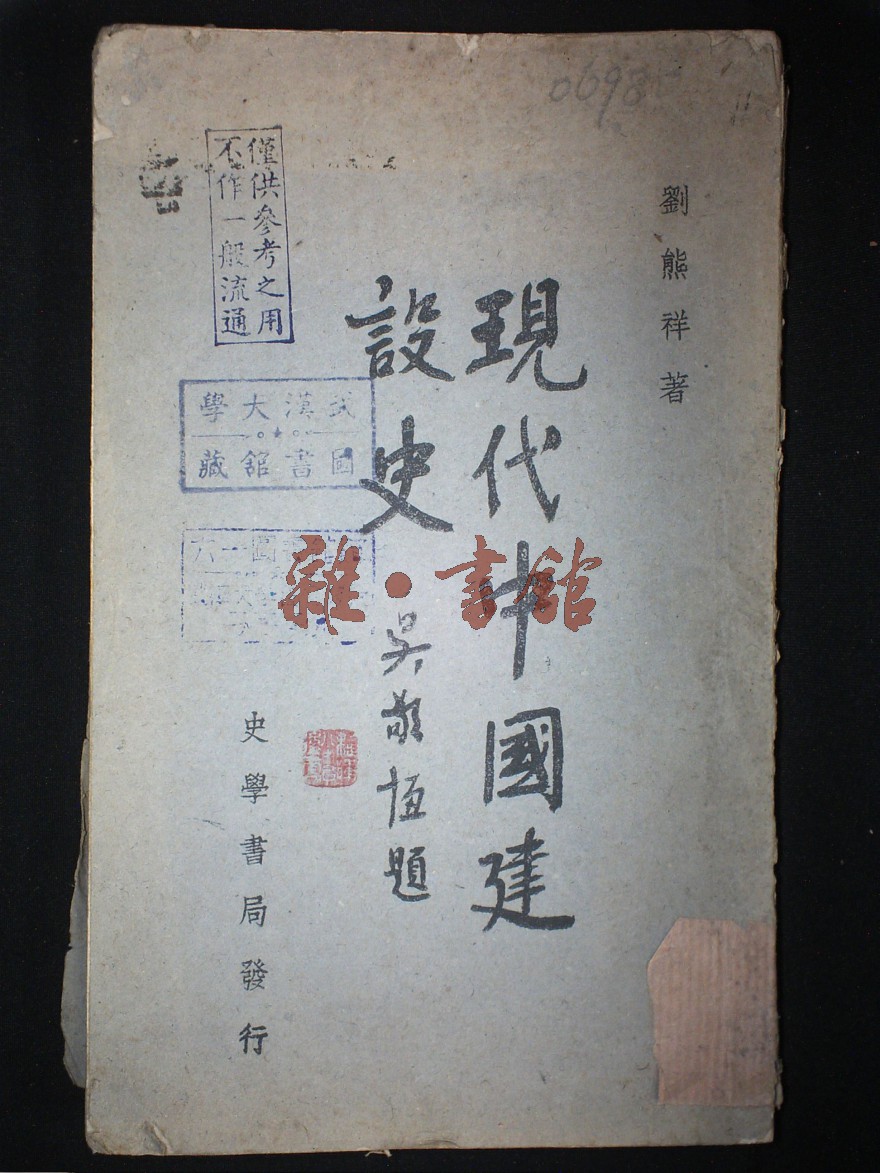 0698
劉熊祥著
現代中國建
設史
吳敬恆題
史學書局發行
僅供參考之用
不作一般流通
武漢大學
圖書館藏
雜·書館